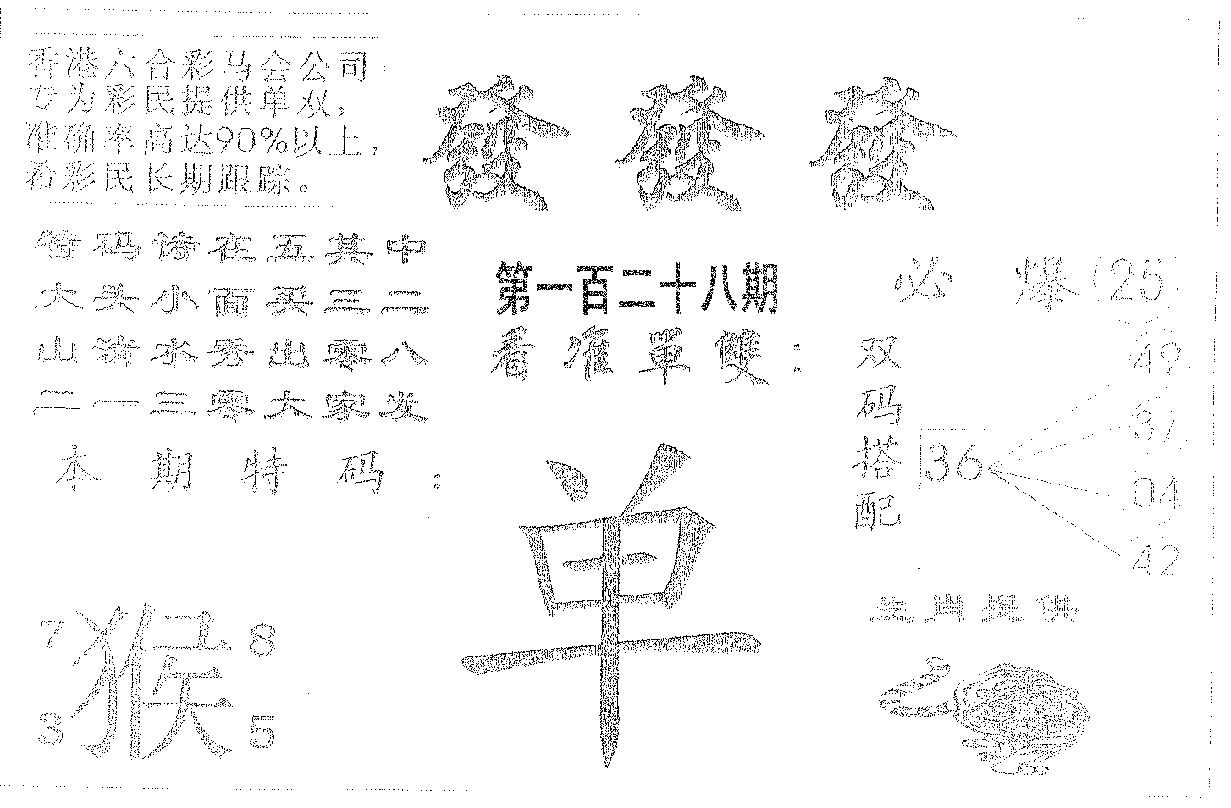 香港六合彩马会公司
专为彩民提供单双，
准确率高达90%以上，
看彩民长期跟踪。
發 發 發
特码诗在五其中
大头小面买三二
山清水秀出零八
二一三零大家发
本期特码：
第一百二十八期
看准單雙：
单
必爆(25)
双码搭配
36
49
37
04
42
生肖提供
7 8
猴
3 5